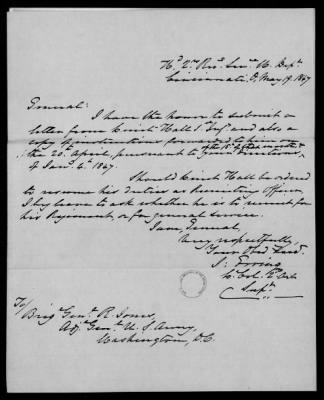 Hd. Qrs. Rec'g Service W. Dept.
Cincinnati O. May 19. 1847
General:
I have the honor to submit a
letter from Lieut Hall 1" Inf. and also a
copy of instructions forwarded to him on
the 15th of that month &
the 20th April, pursuant to your directions,
of Jany. 4th 1847.
Should Lieut Hall be ordered
to resume his duties as Recruiting Officer,
I beg leave to ask whether he is to recruit for
his Regiment, or for general service.
I am, General
Very respectfully
Your Obed. Servt.
J. Erving
Lt. Col. 2d Arty
Supt.
To/
Brig Genl. R Jones,
Adj. Genl. U. S. Army,
Washington, D. C.